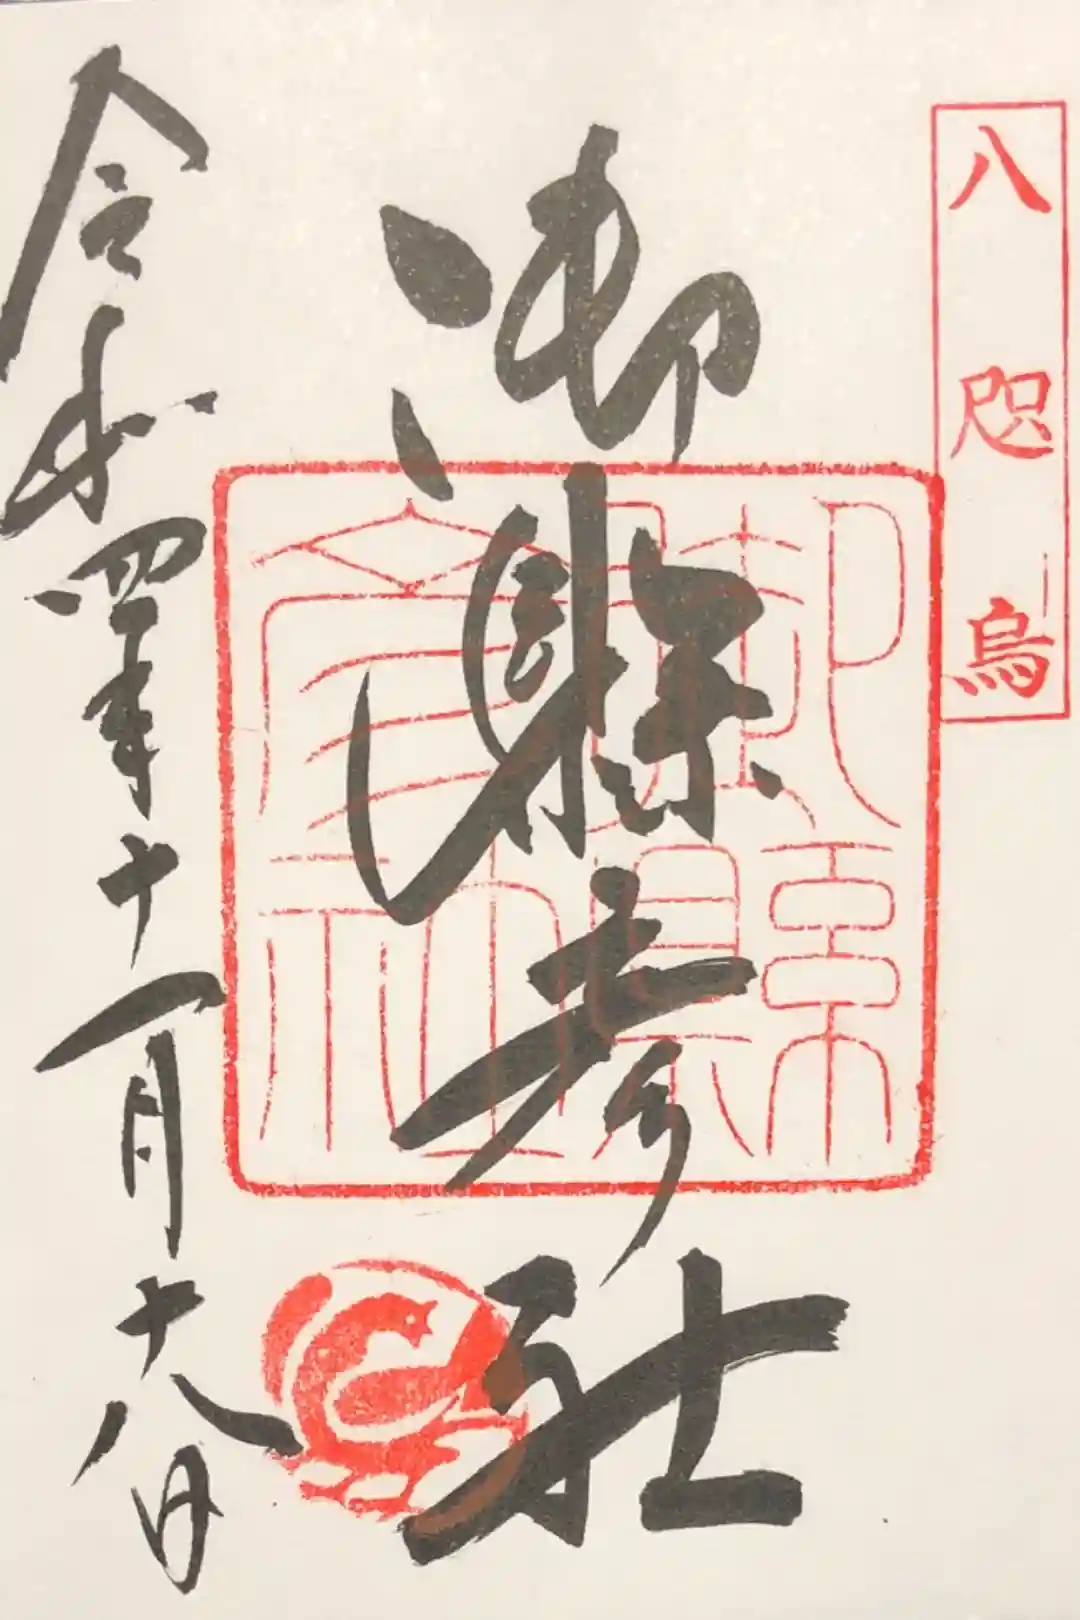 八咫烏
御縣彦社
御縣
彦社
令和四年十一月十八日